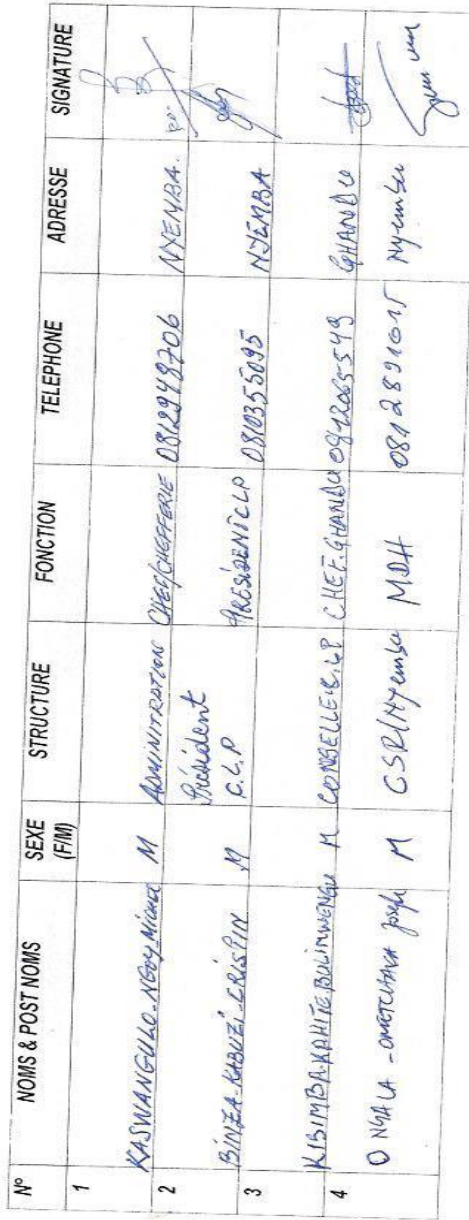 N° NOMS & POST NOMS SEXE (F/M) STRUCTURE FONCTION TELEPHONE ADRESSE SIGNATURE
1 KASWANGULO-NGOY Michel M ADMINITRATION CHEF/CHEFFERIE 0812948706 NYEMBA.
2 BINZA-KABUZI-CRISPIN M Président C.L.P PRESIDENT CLP 0810355095 NYEMBA
3 KIBIMBA-KAHITE BULIMWENGU M CONSELLE C.LP CHEF.GHANDU GHANDU
4 ONYALA - OMETCHAKA Joseph M CSR/Nyemba MDH Nyemba